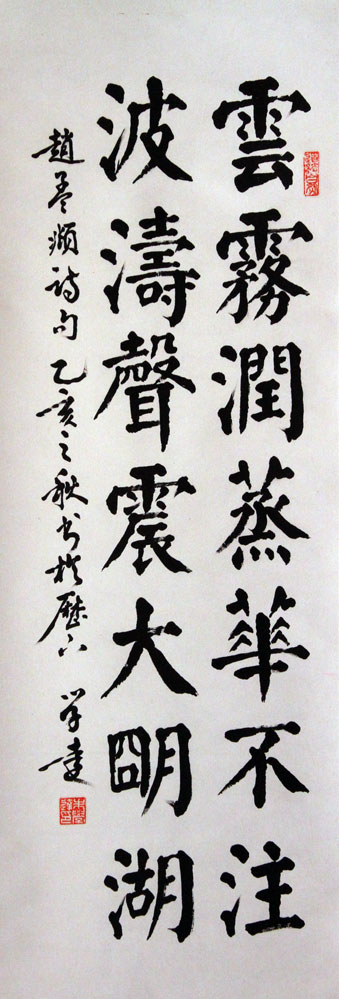 雲霧潤蒸華不注
波濤聲震大明湖
趙孟頫詩句乙亥之秋書於歷下學達